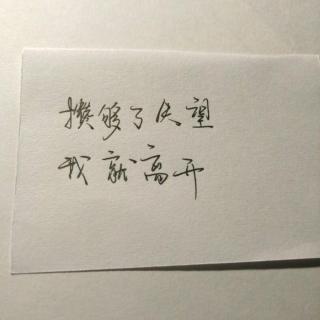 攒够了失望
我就离开